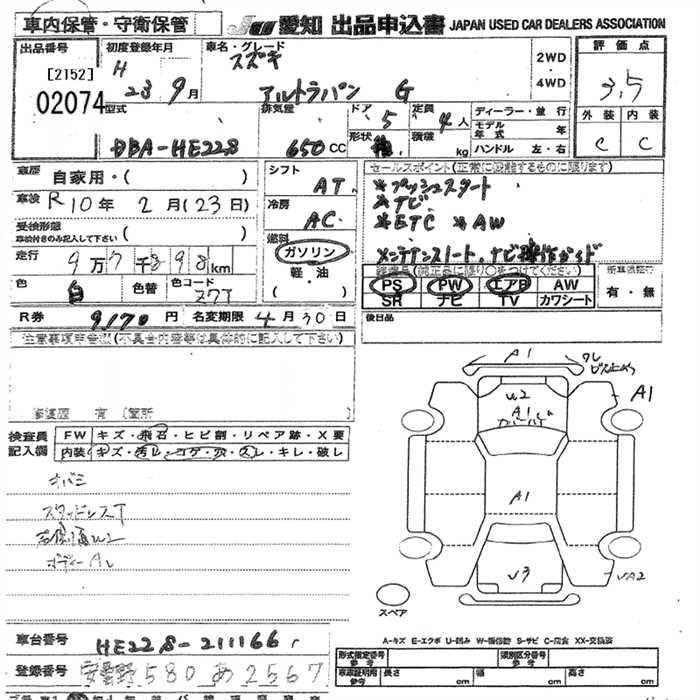 車内保管・守衛保管 JU 愛知 出品申込書 JAPAN USED CAR DEALERS ASSOCIATION
出品番号 初度登録年月 車名・グレード 評価点
[2152] H 23 9月 スズキ 2WD・4WD 3.5
02074 アルトラパン G
型式 排気量 ドア 定員 ディーラー・並行 外装 内装
DBA-HE22S 650cc 5 4人 モデル年式 年 C C
形状 積載 kg ハンドル 左・右
車歴 自家用・( ) シフト セールスポイント(正常に機能するものに限ります)
車検 R10年 2月(23日) AT *プッシュスタート
*ナビ
受検形態 冷房 *ETC *AW
車検付きのみ記入して下さい ( ) AC
走行 9万7千898km 燃料 ガソリン・軽・油 ( )
色 白 色替 色コード Z7T
PS PW エアB AW 有・無
SR ナビ TV カワシート
R券 9170円 名変期限 4月30日 後日品
注意事項申告欄(不具合内容等は具体的に記入して下さい)
修復歴 有 (箇所
検査員記入欄 FW キズ・飛石・ヒビ割・リペア跡・X要
内装 キズ・汚レ・コゲ・穴・スレ・キレ・破レ
スタッドレスT
A1
U2 A1
A1
A1
U3
スペア
A-キズ E-エクボ U-凹み W-補修跡 S-サビ C-腐食 XX-交換済
車台番号 HE22S-211166
登録番号 安曇野 580 あ 2567
形式指定番号 参考 類別区分番号 参考
車庫証明用 参考 長さ cm 幅 cm 高さ cm